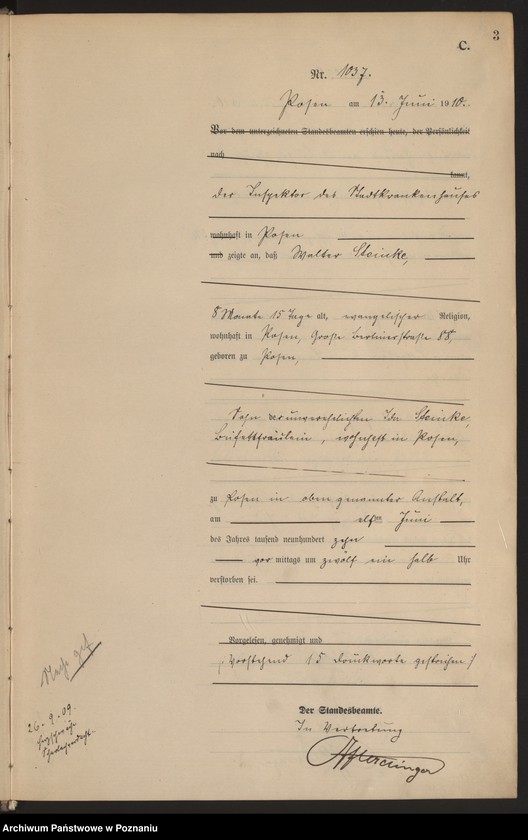 3
C.
Nr. 1037.
Posen am 13. Juni 1910.
Vor dem unterzeichneten Standesbeamten erschien heute, der Persönlichkeit
nach
kannt,
der Inspektor des Stadtkrankenhauses
wohnhaft in Posen
und zeigte an, daß Walter Steinke,
8 Monate 15 Tage alt, evangelischer Religion,
wohnhaft in Posen, Große Berlinerstraße 88,
geboren zu Posen,
Sohn der unverehelichten Ida Steinke,
Büfettfräulein, wohnhaft in Posen,
zu Posen in oben genannter Anstalt,
am elften Juni
des Jahres tausend neunhundert zehn
vor mittags um zwölf ein halb Uhr
verstorben sei.
Vorgelesen, genehmigt und
/: vorstehend 15 Druckworte gestrichen :/
Der Standesbeamte.
In Vertretung
26.9.09
Archiwum Państwowe w Poznaniu